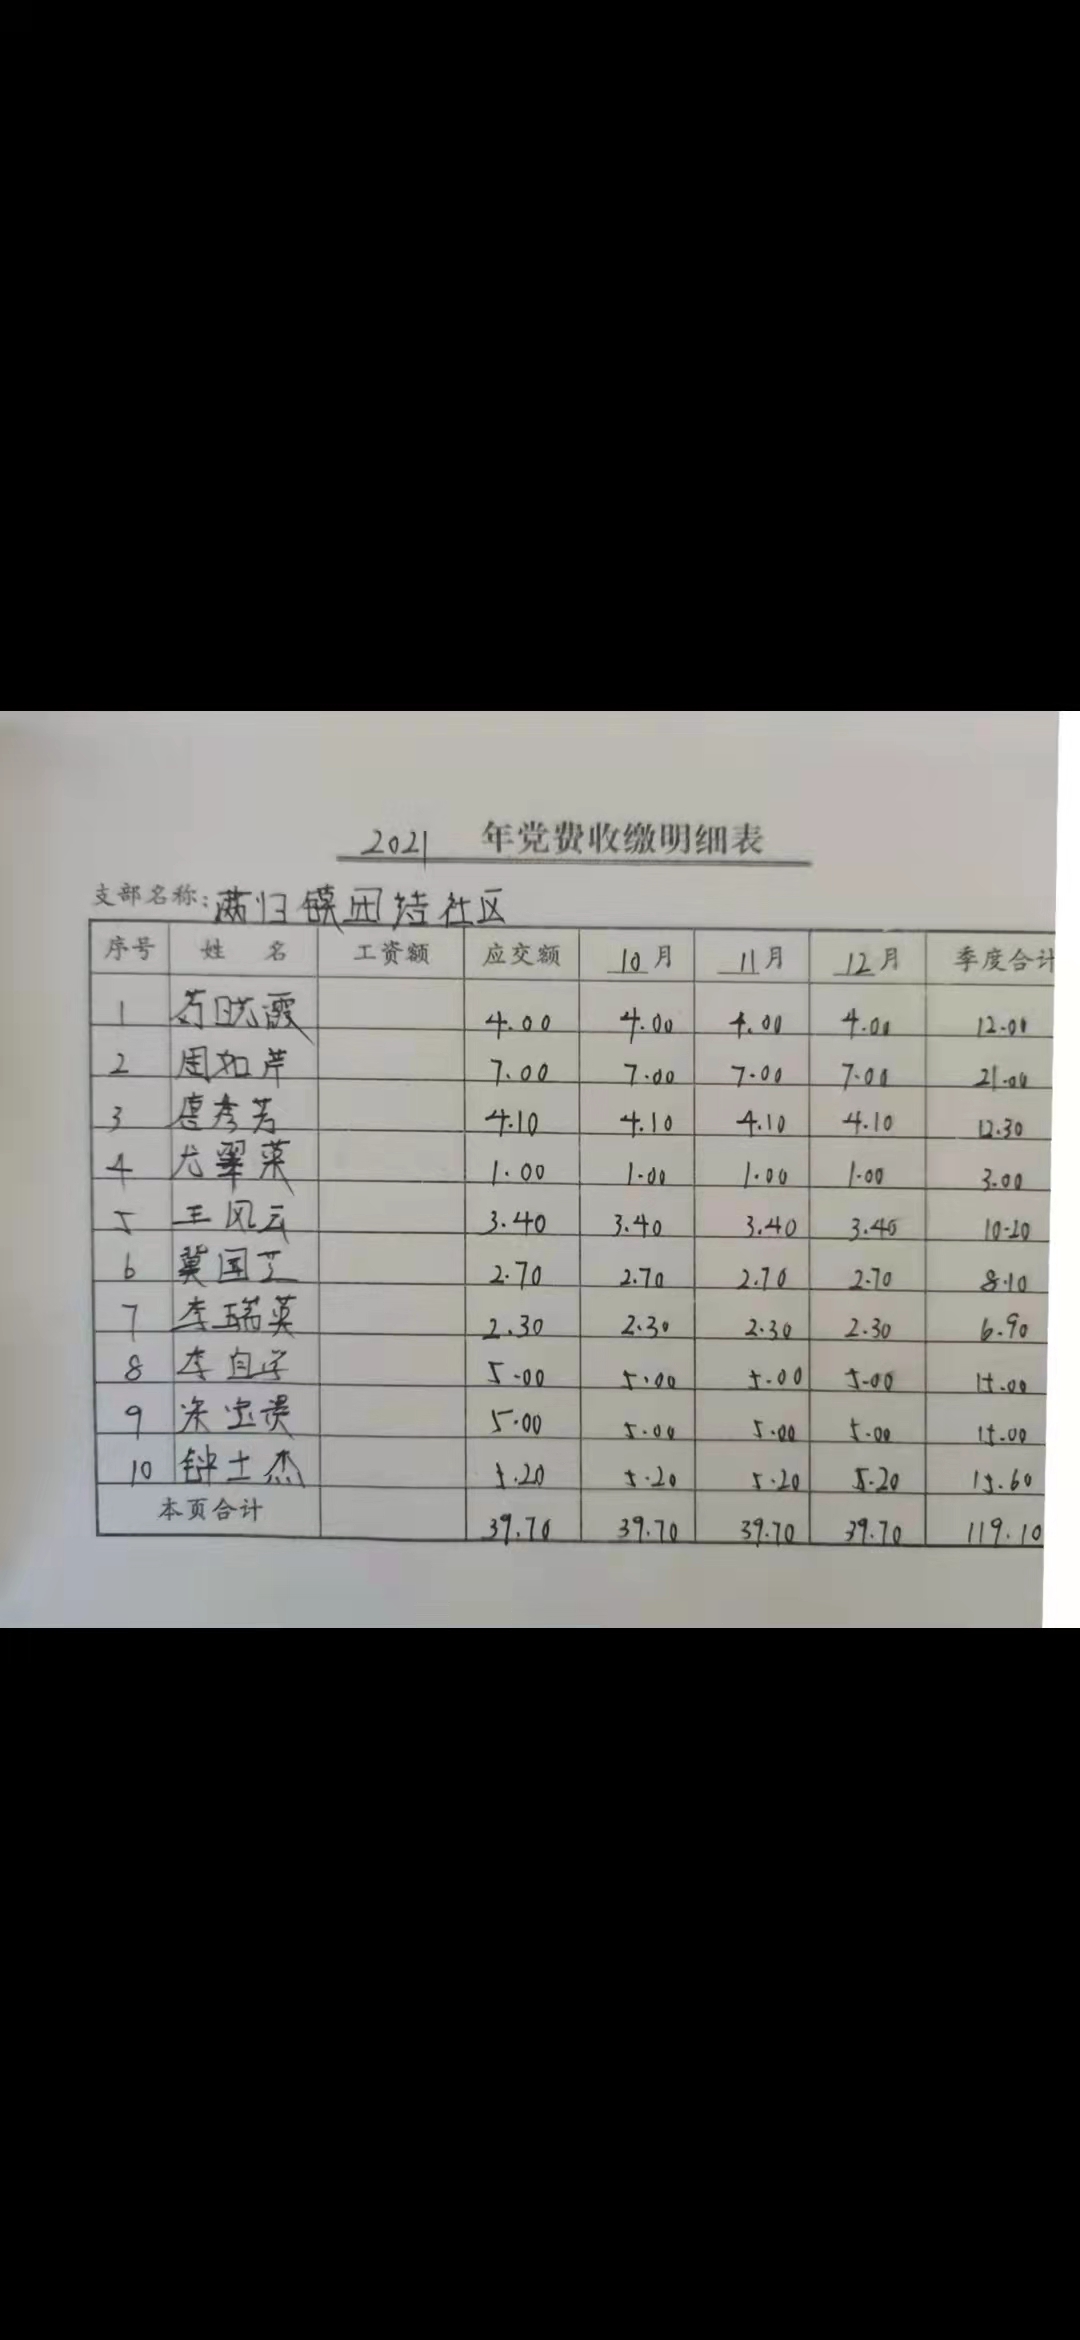 2021 年党费收缴明细表
支部名称：满归镇团结社区
序号 姓名 工资额 应交额 10月 11月 12月 季度合计
1 苟晓霞 4.00 4.00 4.00 4.00 12.00
2 周如芹 7.00 7.00 7.00 7.00 21.00
3 唐彦芳 4.10 4.10 4.10 4.10 12.30
4 尤翠荣 1.00 1.00 1.00 1.00 3.00
5 王凤云 3.40 3.40 3.40 3.40 10.20
6 冀国芝 2.70 2.70 2.70 2.70 8.10
7 李瑞英 2.30 2.30 2.30 2.30 6.90
8 李自学 5.00 5.00 5.00 5.00 15.00
9 宝贵 5.00 5.00 5.00 5.00 15.00
10 钟士杰 5.20 5.20 5.20 5.20 15.60
本页合计 39.70 39.70 39.70 39.70 119.10